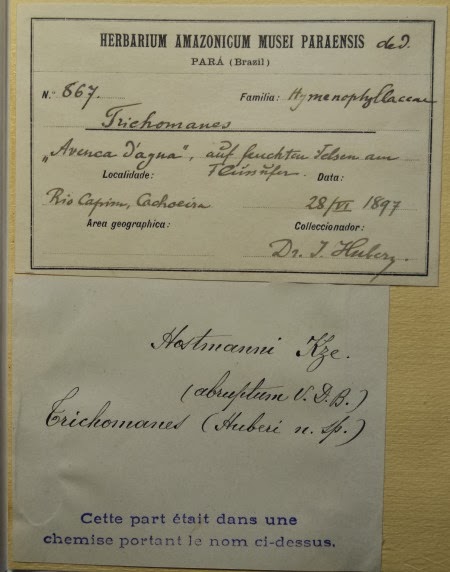 HERBARIUM AMAZONICUM MUSEI PARAENSIS ded.
PARÁ (Brazil)
N.º 867. Familia: Hymenophyllaceae
Trichomanes
„Avenca d'agua", auf feuchten Felsen am
Localidade: Flussufer. Data:
Rio Capim, Cachoeira 28/VI 1897
Area geographica: Colleccionador:
Dr. J. Huber
Hostmanni Kze.
(abruptum V. D. B.)
Trichomanes (Huberi n. sp.)
Cette part était dans une
chemise portant le nom ci-dessus.